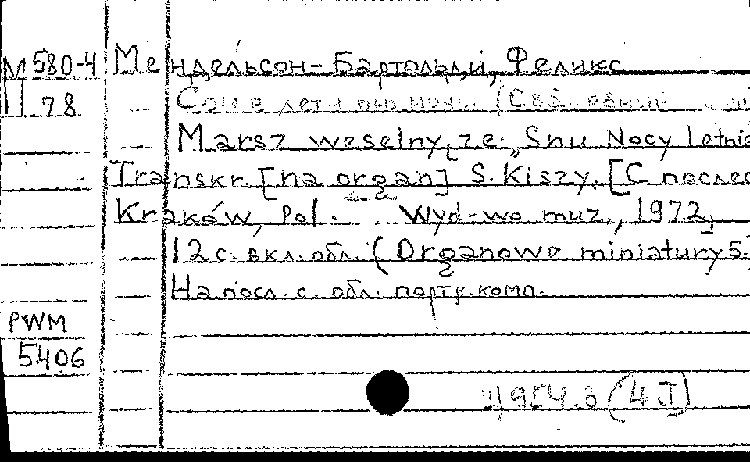 М 580-4 Мендельсон-Бартольди, Феликс
П 78 Сон в летнюю ночь. [Свад.
Marsz weselny ze „Snu Nocy letnie
Transkr. [na organ] S. Kiszy. [С послес
Kraków, Pol. Wyd-wo muz., 1972.
12 с. вкл. обл. (Organowe miniatury 5.
На посл. с. обл. портр. комп.
PWM
5406
(4 I)